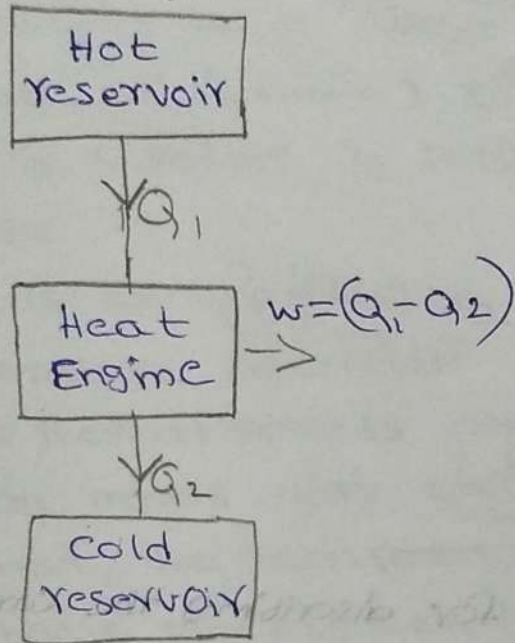 Hot
reservoir
Q1
Heat
Engime
w=(Q1-Q2)
Q2
cold
reservoir